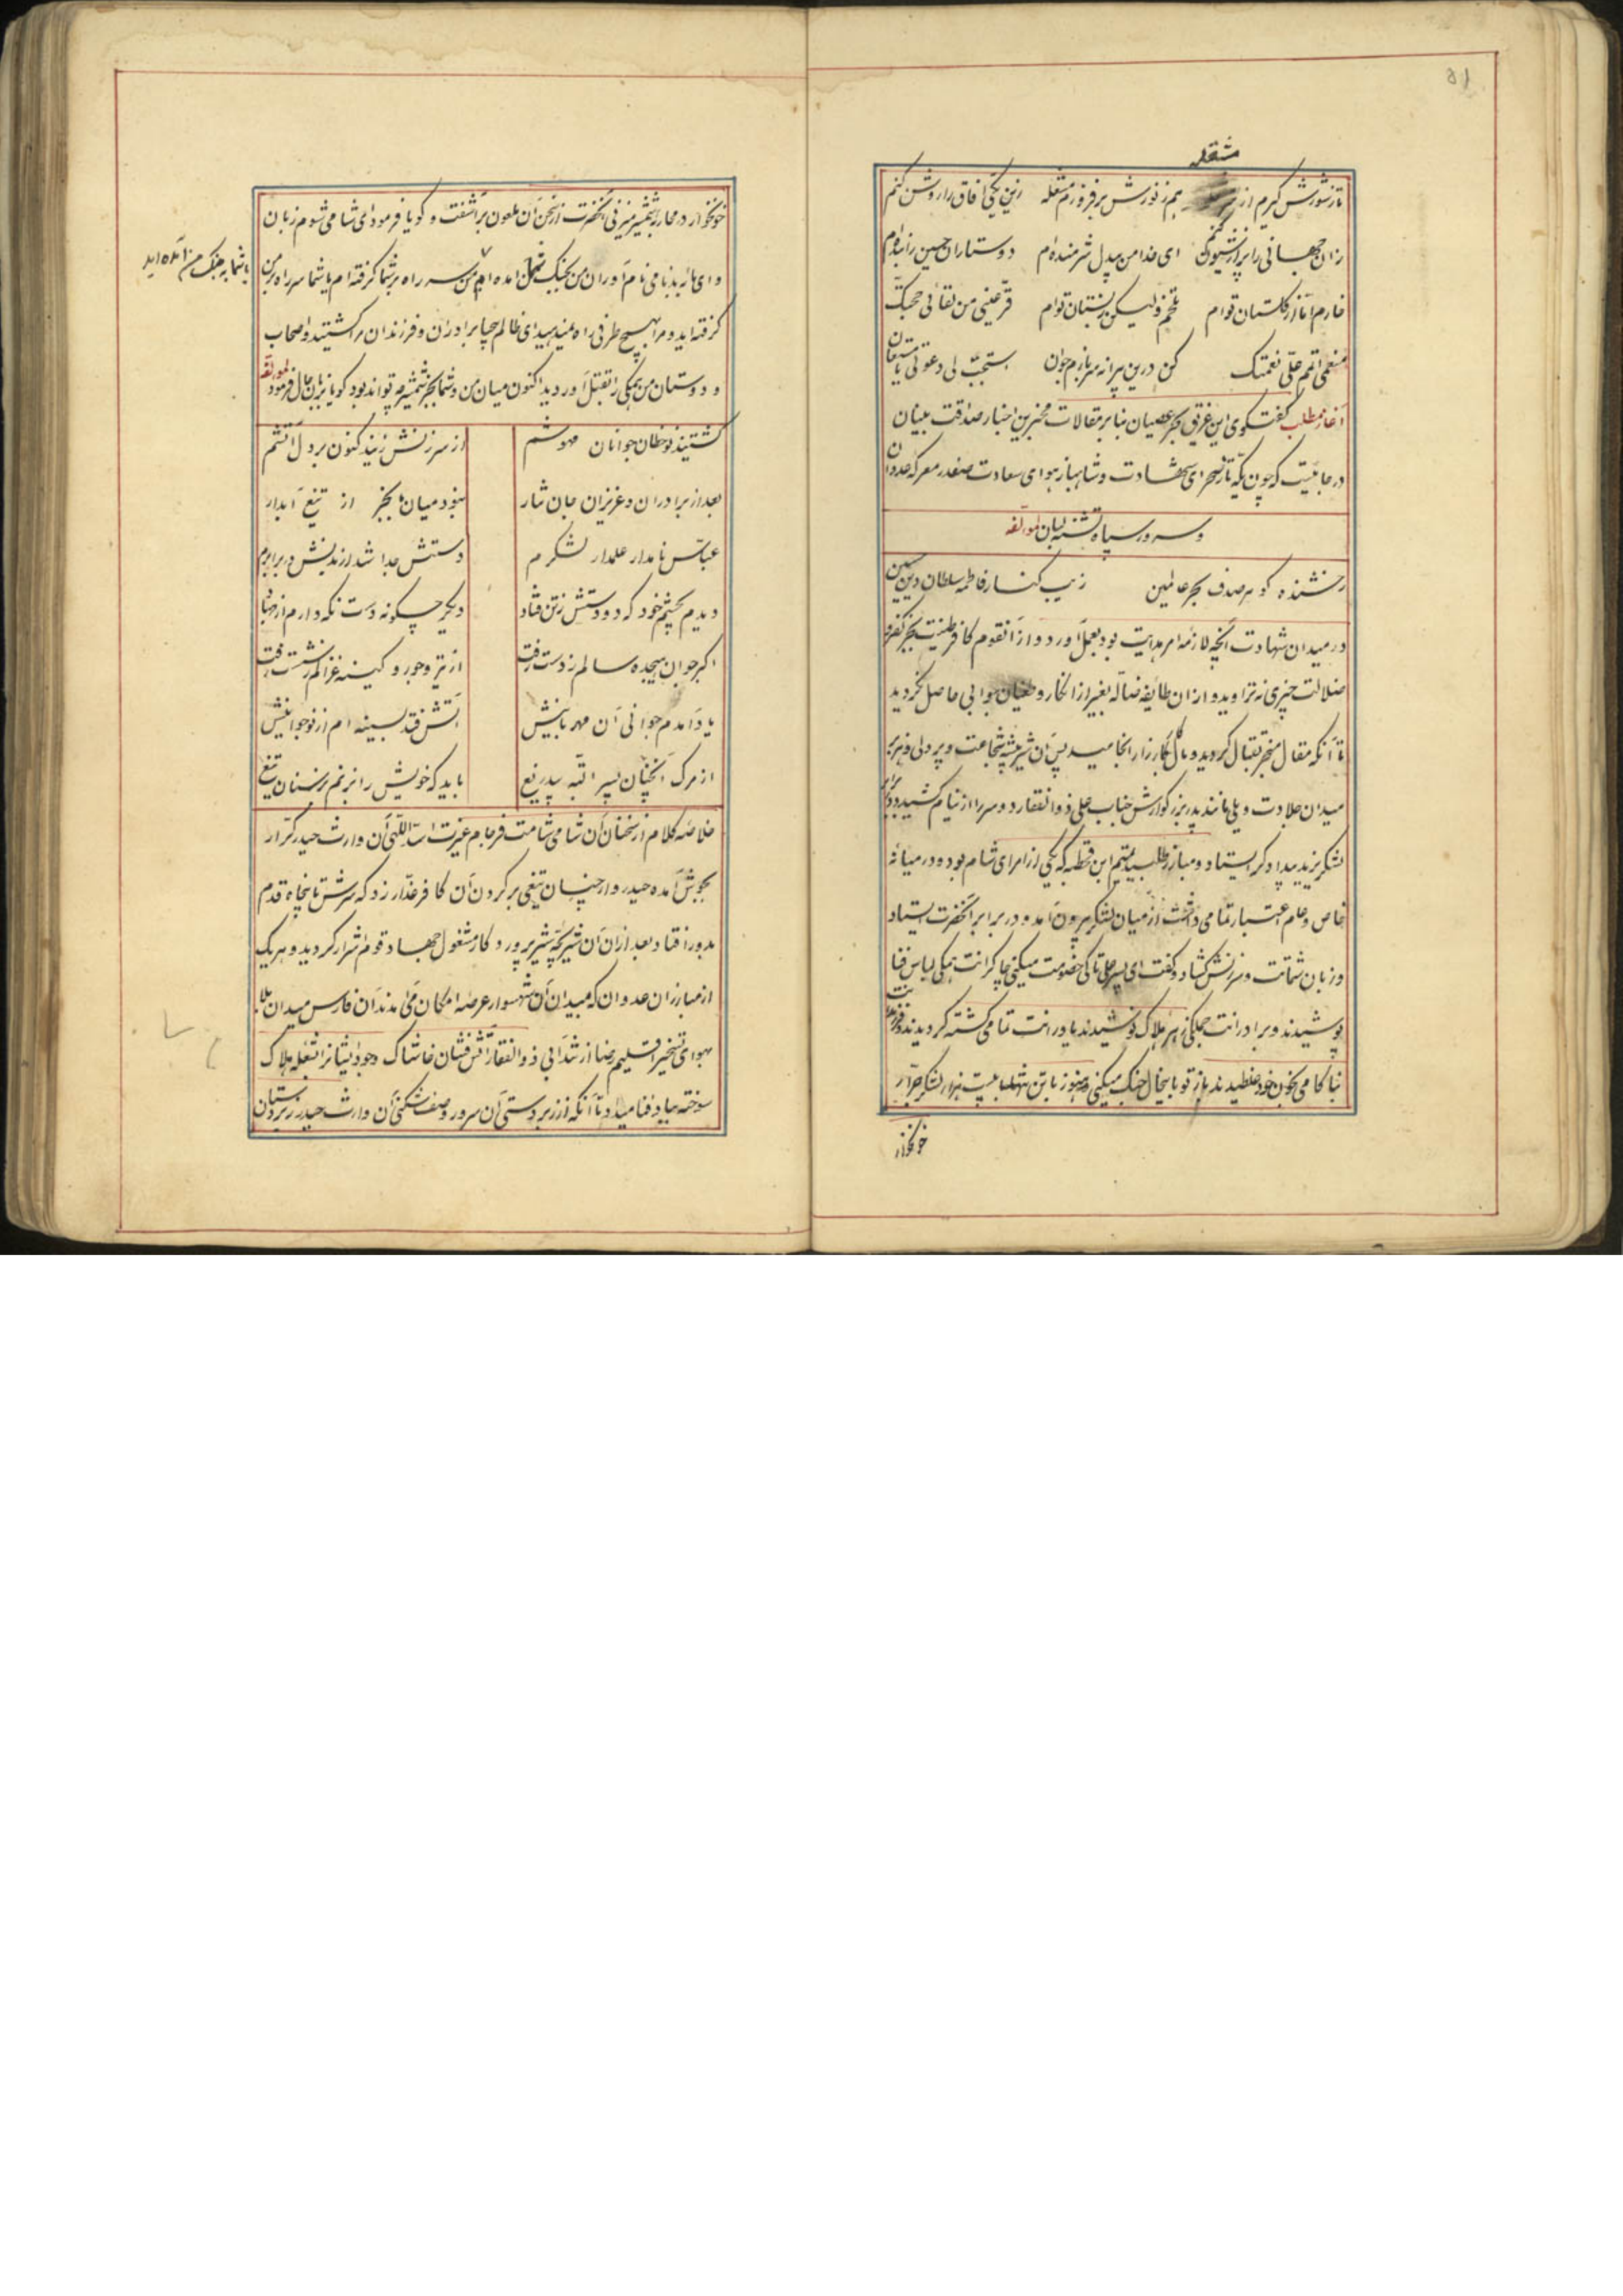 ۵۱
مشعله
تا ز شورش گیرم از هم ز نورش برفروزم مشعله زین یکی آفاق را روشن کنم
زان جهانی را پر از شیون کنم ای خدا من بیدل شرمنده‌ام دوستاران حسین را بنده‌ام
خارم اما از گلستان توام تلخم ولیکن ز بستان توام قرّعینی من لقائی حجتک
منعمی اتمم علیّ نعمتک کن درین پیرانه سر بازم جوان استجب لی دعوتی یا مستعان
آغاز مطلب گفتگوی این غریق بحر عصیان بنا بر مقالات مخبرین اخبار صداقت بنیان
در جائیست که چون یکه تاز صحرای شهادت و شاهباز هوای سعادت صفدر معرکه عدوان
و سرور سپاه تشنه لبان لمؤلفه
رخشنده گوهر صدف بحر عالمین زیب کنار فاطمه سلطان دین حسین
در میدان شهادت آنچه لازمه امر هدایت بود بعمل آورد و از آنقوم کافر طینت بجز کفر و
ضلالت چیزی نتراوید و از ان طایفه ضالّه بغیر از انکار و جوابی حاصل نگردید
تا آنکه مقال منجر بقتال گردید و مآل بکارزار انجامید پس آن شیر بیشه شجاعت و پر دلی و هزبر
میدان جلادت و یلی مانند پدر بزرگوارش جناب علی ذوالفقار دو سر را از نیام کشید و در برابر
لشکر یزید پیدادگر ایستاد و مبارز طلبید تمیم ابن قحطبه که یکی از امرای شام بوده و در میانه
خاص و عام اعتبار تمامی داشت از میان لشکر بیرون آمد و در برابر آنحضرت بیستاد
و زبان شماتت و سرزنش گشاد و گفت ای پسر علی تا کی خصومت میکنی چاکرانت همگی لباس فنا
پوشیدند و برادرانت جملگی زهر هلاک نوشیدند یاورانت تمامی کشته گردیدند و فرزندانت
بناکامی بخون خود غلطیدند باز تو باینحال جنگ میکنی و هنوز با تن تنها با بیست هزار لشکر جرّار
خونخوار
خونخوار در محاربه شمشیر میزنی آنحضرت از سخن آن ملعون برآشفت و گویا فرمود ای شامی شوم زبان
و ای مارید بنامی نام آوران من بجنگ شما آمده‌ام من سر راه بر شما گرفته‌ام یا شما سر راه بر من
یا شما بجنگ من آمده‌اید
گرفته‌اید و مرا بهیچ طرفی راه نمیدهید ای ظالم چیا برادران و فرزندان مرا کشتید و اصحاب
و دوستان من همگی را بقتل آوردید اکنون میان من و شما بجز شمشیر چه تواند بود گویا بزبان حال فرمود لمؤلفه
کشتید نوخطان جوانان مهوشم از سرزنش زنید کنون بر دل آتشم
بعد از برادران و عزیزان جان نثار نبود میان ما بجز از تیغ آبدار
عبّاس نامدار علمدار لشکرم دستش جدا شد از بدنش در برابرم
دیدم بچشم خود که دو دستش ز تن فتاد دیگر چگونه دست نگه دارم از جهاد
اکبر جوان هیجده سالم ز دست رفت از تیر و جور و کینه غزالم ز شست رفت
یاد آمدم جوانی آن مهربانیش آتش فتد بسینه‌ام از نوجوانیش
از مرگ آنچنان پسر البته بیدریغ باید که خویش را بزنم بر سنان و تیغ
خلاصه کلام از سخنان آن شامی شامت فرجام غیرت اسد اللّهی آن وارث حیدر کرّار
بجوش آمده حیدروار چنان تیغی بر گردن آن کافر غدّار زد که سرش تا پنجاه قدم
بدور افتاد بعد از ان آن شیر بچه شیر پرورد کار مشغول جهاد قوم اشرار گردید و هر یک
از مبارزان عدوان که میدان آن شهسوار عرصه امکان می‌آمدند آن فارس میدان بلا
بهوای تسخیر اقلیم رضا از شدّابی ذوالفقار آتش فشان خاشاک وجود ایشانرا شعله هلاک
سوخته بباد فنا میداد تا آنکه از زبردستی آن سرور و صف شکنی آن وارث حیدر زبردستان